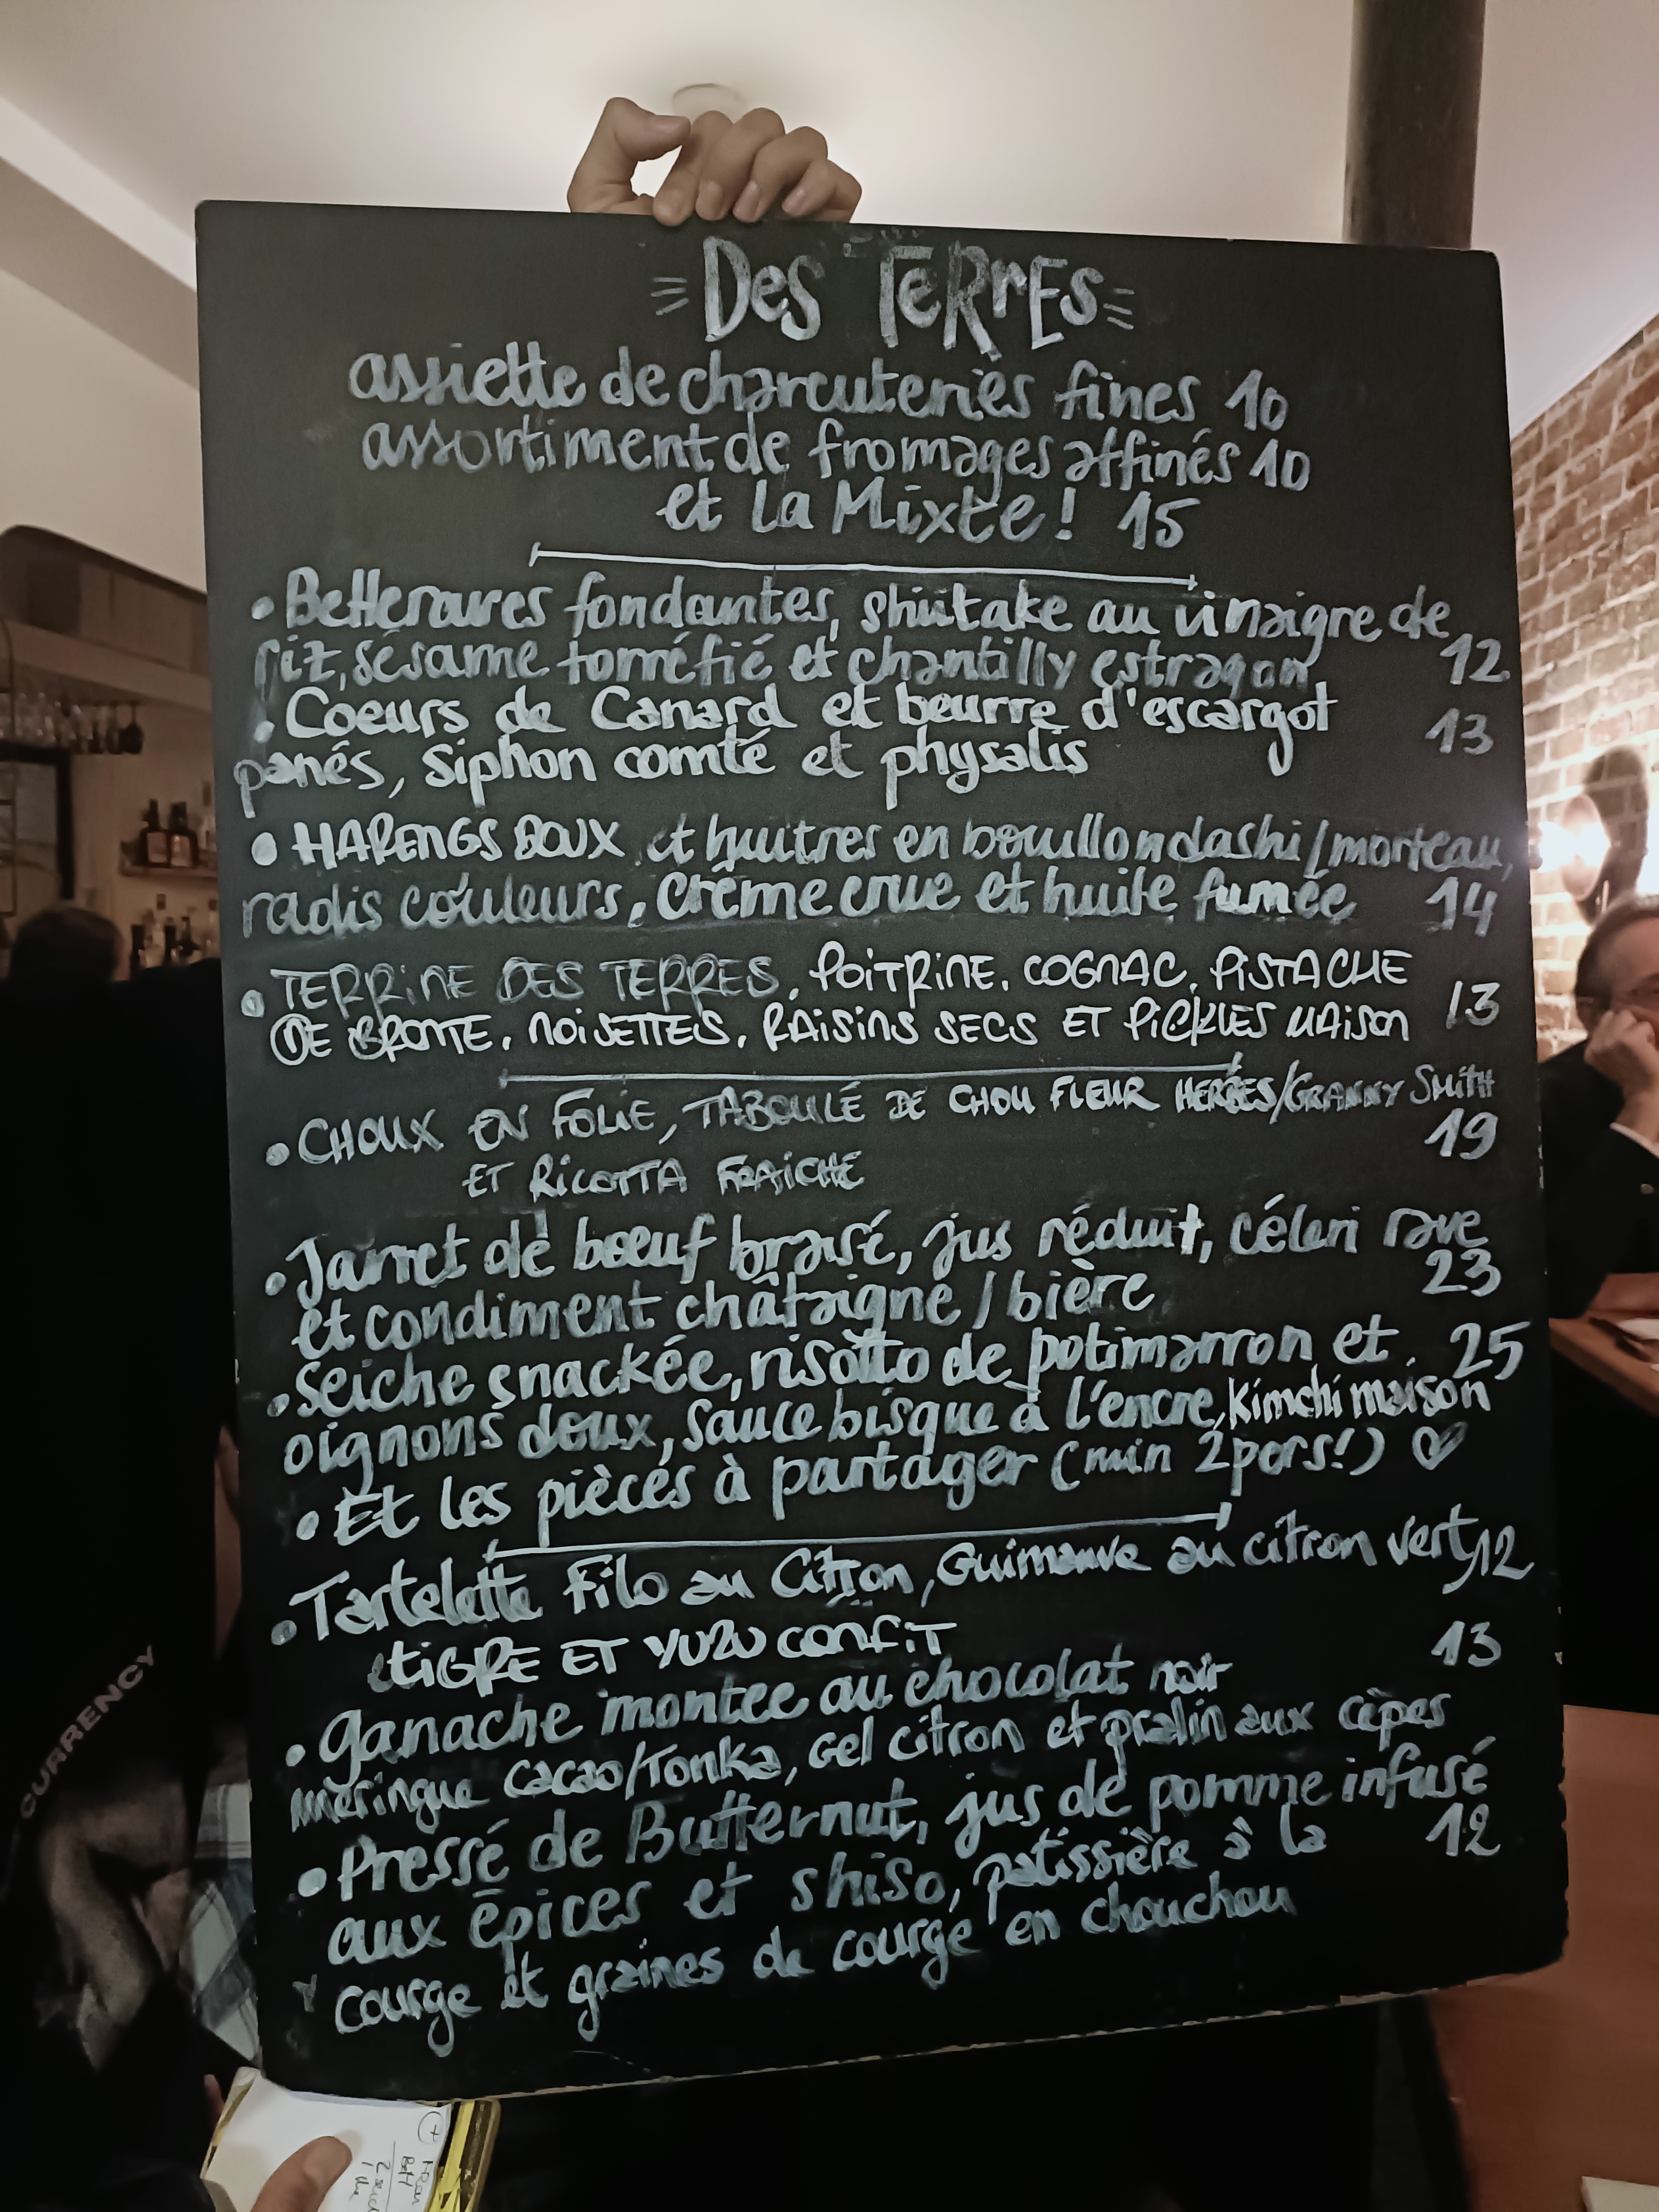 Des Terres
assiette de charcuteries fines 10
assortiment de fromages affinés 10
et la Mixte ! 15
• Betteraves fondantes, shiitake au vinaigre de
riz, sésame torréfié et chantilly estragon 12
• Coeurs de Canard et beurre d'escargot
panés, Siphon comté et physalis 13
• HARENGS DOUX et huitres en bouillon dashi/morteau,
radis couleurs, crème crue et huile fumée 14
• TERRINE DES TERRES, POITRINE, COGNAC, PISTACHE
DE BRONTE, NOISETTES, RAISINS SECS ET PICKLES MAISON 13
• CHOUX EN FOLIE, TABOULÉ DE CHOU FLEUR HERBES/GRANNY SMITH
ET RICOTTA FRAICHE 19
• Jarret de boeuf braisé, jus réduit, céleri rave
et condiment châtaigne / bière 23
• Seiche snackée, risotto de potimarron et 25
oignons doux, sauce bisque à l'encre, kimchi maison
• Et les pièces à partager (min 2 pers!) ♡
• Tartelette Filo au Citron, Guimauve au citron vert, 12
TIGRE ET YUZU CONFIT
• ganache montée au chocolat noir 13
meringue cacao/Tonka, Gel citron et pralin aux cèpes
• Pressé de Butternut, jus de pomme infusé
aux épices et shiso, patissière à la 12
courge et graines de courge en chouchou
CURRENCY